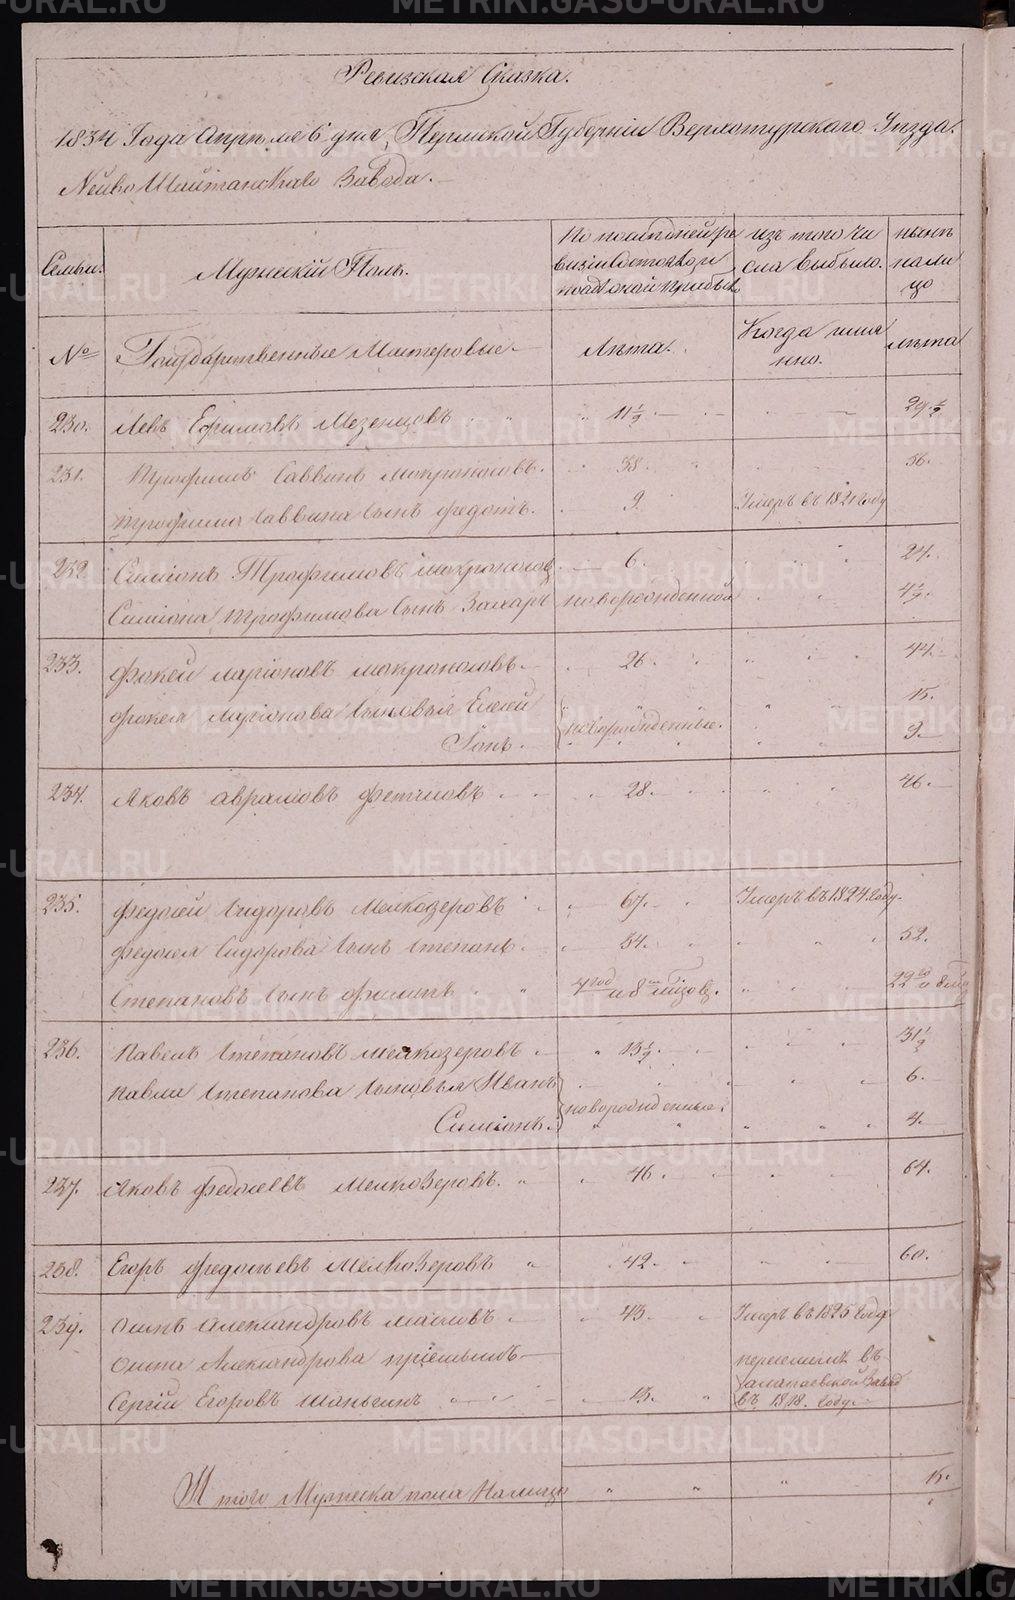 Ревизская Сказка.
1834 Года Апреля 6 дня, Пермской Губерніи Верхотурскаго Уезда.
Нейво Шайтанскаго Завода.
Семьи.
Мужескій Полъ.
По последней ре
визіи состояло и
после оной прибыло
изъ того чи
сла выбыло.
ныне
нали
цо
№
Государственные Мастеровые.
Лета.
Когда имян
но.
лета
230. Левъ Ефимовъ Мезенцовъ 11½ 29½
231. Трофимъ Саввинъ Мокроносовъ. 38. 56.
Трофима Саввина сынъ Федотъ. 9. Умеръ въ 1821 году
232 Симіонъ Трофимовъ Мокроносовъ 6. 24.
Симіона Трофимова сынъ Захаръ новорожденной 4½.
233. Фокей Ларіоновъ Мокроносовъ. 26. 44.
Фокея Ларіонова сыновья Елисей 15.
новорожденные.
Іона. 9.
234. Яковъ Аврамовъ Фетиловъ 28. 46.
235. Федосей Сидоровъ Мелкозеровъ 67. Умеръ въ 1824 году.
Федосея Сидорова сынъ Степанъ. 34. 52.
Степановъ сынъ Филипъ 4 год и 8 месяц. 22 и 8 мес
236. Павелъ Степановъ Мелкозеровъ 13½. 31½
Павла Степанова сыновья Иванъ 6.
новорожденные.
Симіонъ. 4.
237. Яковъ Федосеевъ Мелкозеровъ. 46 64.
238. Егоръ Федосеевъ Мелкозеровъ 42. 60.
239. Осипъ Александровъ Масловъ 43. Умеръ въ 1825 году
Осипа Александрова пріемышъ
переведенъ въ
Алапаевской Завод
Сергій Егоровъ Шаньгинъ 13. въ 1818. году.
Итого Мужеска пола Налицо 15.
METRIKI.GASO-URAL.RU